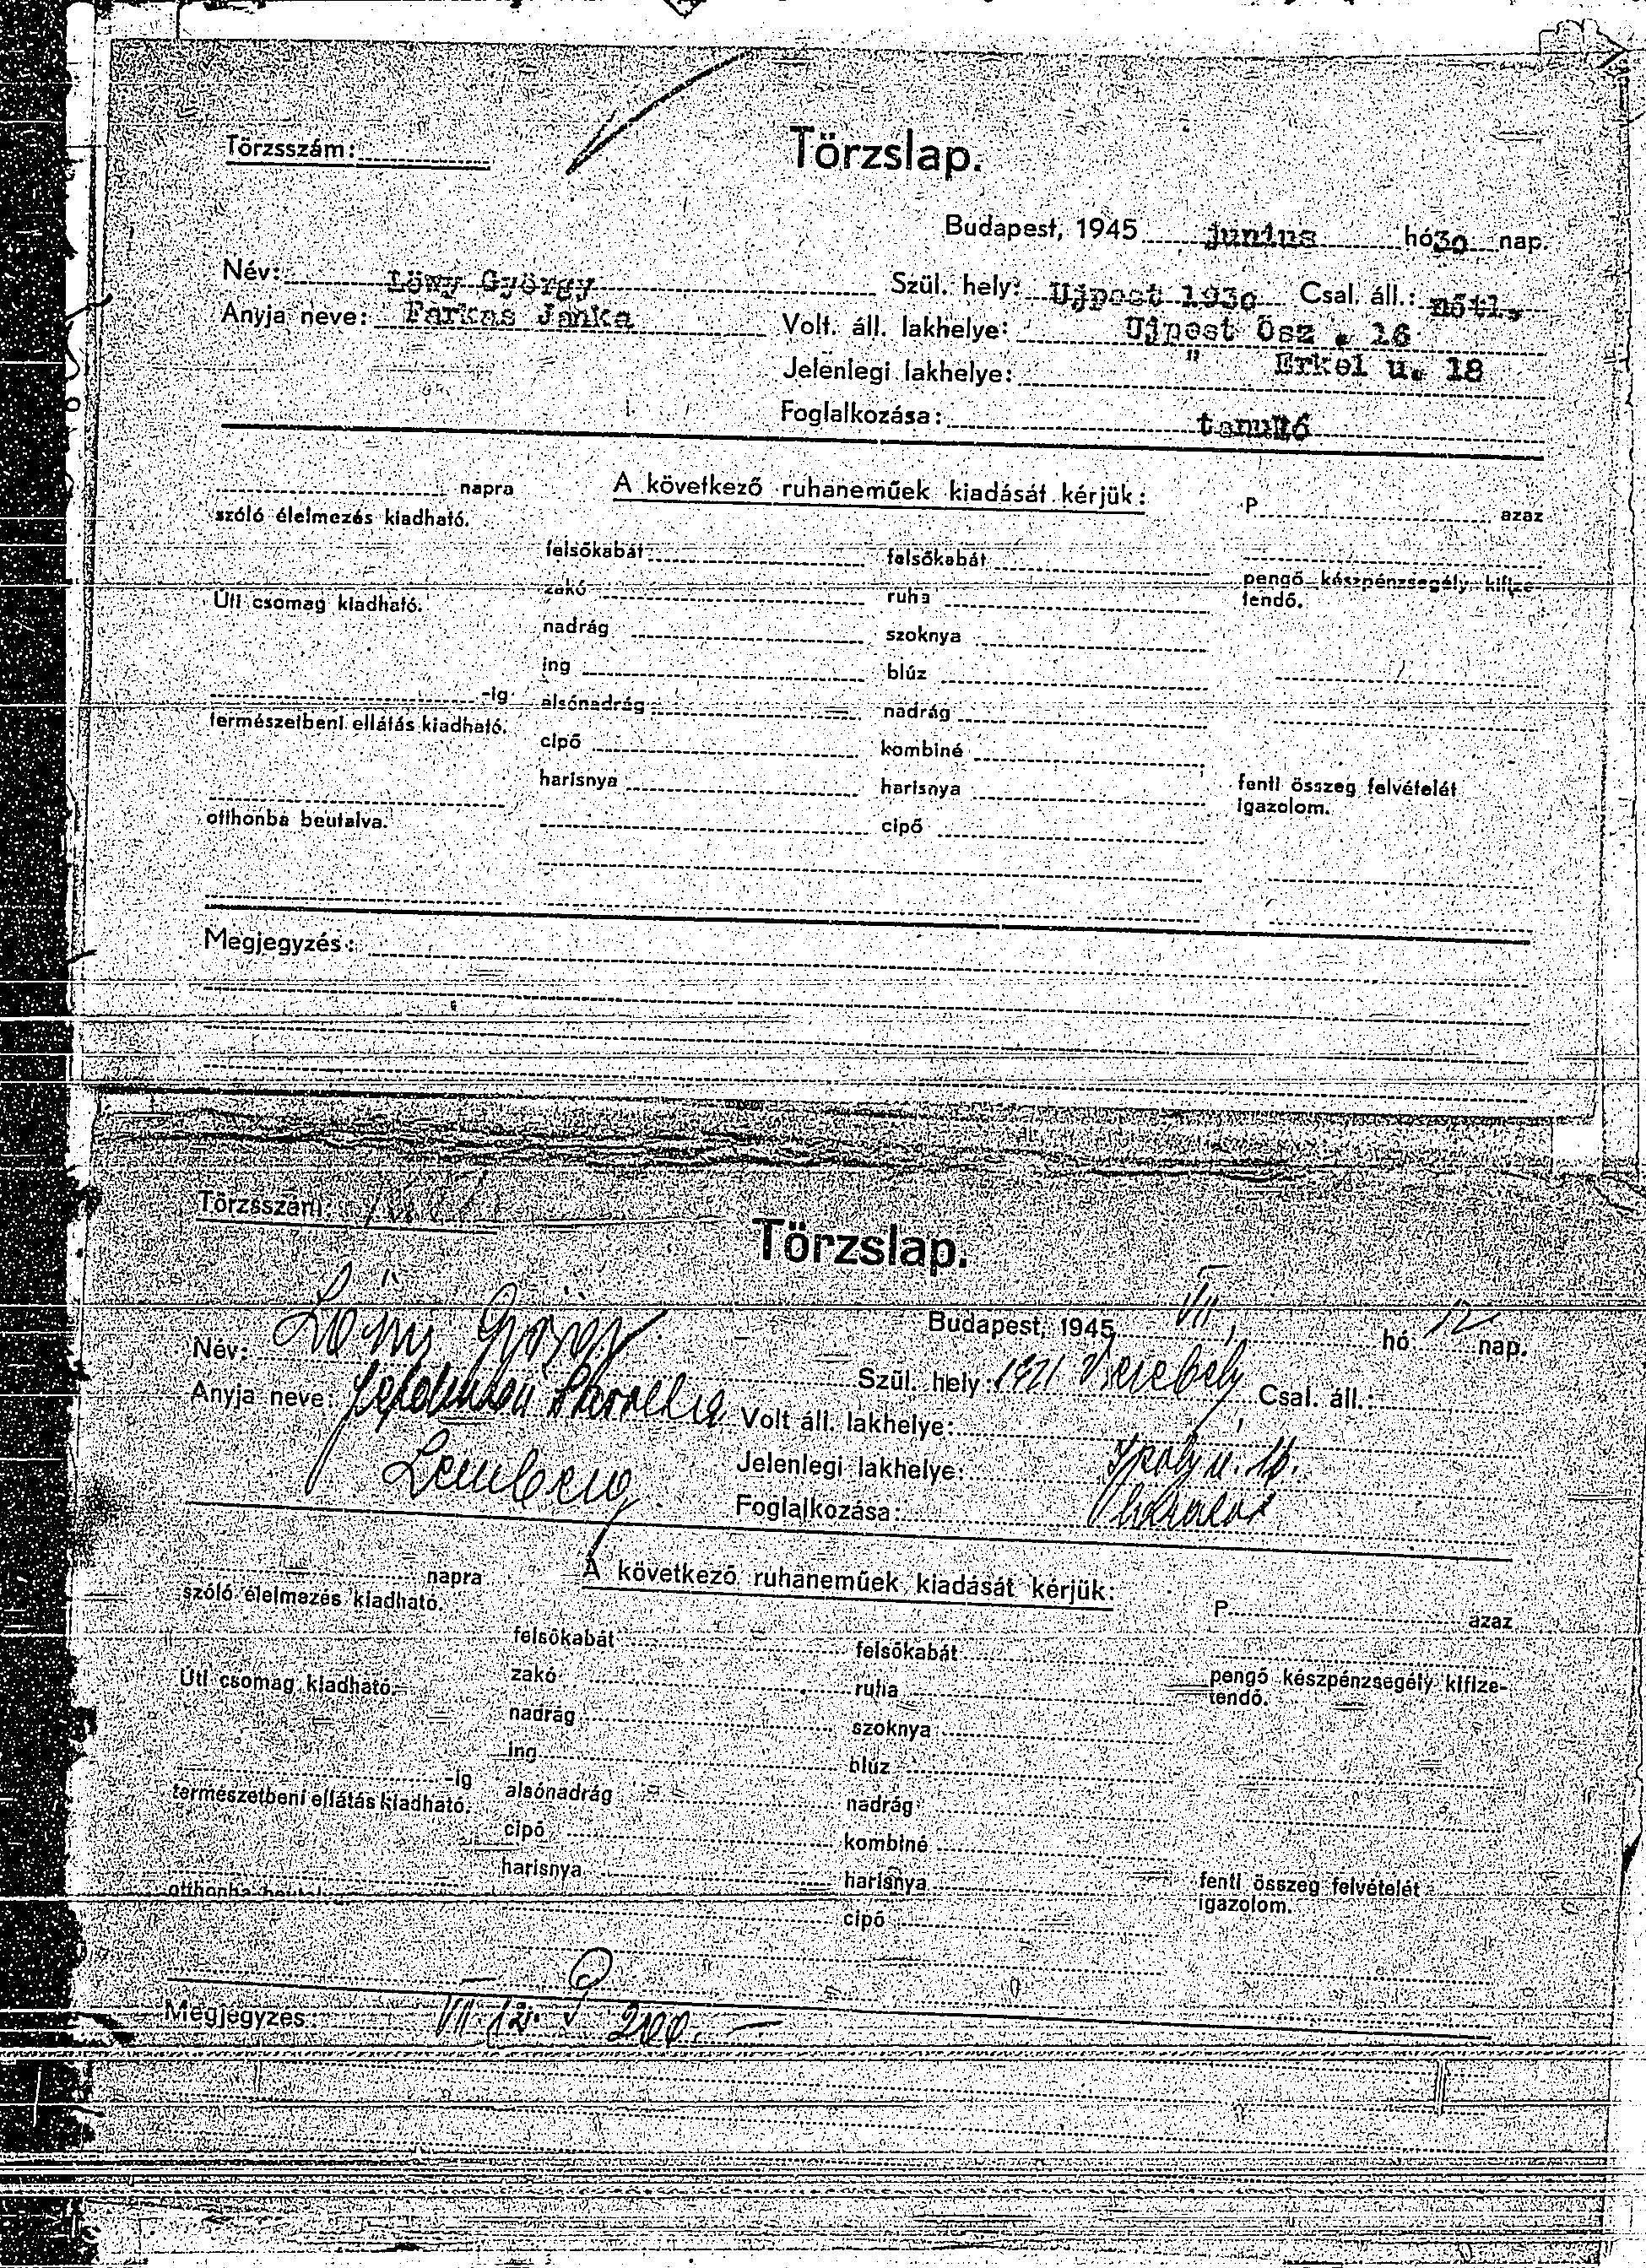 Törzsszám:
Törzslap.
Budapest, 1945 junius hó 30 nap.
Név: Löwy György Szül. hely: Ujpest 1930 Csal. áll.: nőtl,
Anyja neve: Farkas Janka Volt. áll. lakhelye: Ujpest Ősz . 16
Jelenlegi lakhelye: " Erkel u. 18
Foglalkozása: tanuló
napra A következő ruhaneműek kiadását kérjük: P azaz
szóló élelmezés kiadható.
felsőkabát felsőkabát
zakó ruha pengő készpénzsegély kifize-
Uti csomag kiadható. tendő.
nadrág szoknya
ing blúz
-ig alsónadrág nadrág
természetbeni ellátás kiadható.
cipő kombiné
harisnya harisnya fenti összeg felvételét
igazolom.
otthonba beutalva. cipő
Megjegyzés:
Törzsszám:
Törzslap.
Budapest, 1945 VII, hó 12 nap.
Név: Szül. hely: 1921 Verebély Csal. áll.:
Anyja neve: Volt áll. lakhelye:
Lemberg Jelenlegi lakhelye: Ipoly u. 16.
Foglalkozása:
napra A következő ruhaneműek kiadását kérjük: P azaz
szóló élelmezés kiadható.
felsőkabát felsőkabát
Uti csomag kiadható. zakó ruha pengő készpénzsegély kifize-
tendő.
nadrág szoknya
ing blúz
-ig alsónadrág nadrág
természetbeni ellátás kiadható.
cipő kombiné
harisnya harisnya fenti összeg felvételét
igazolom.
otthonba
cipő
Megjegyzés: VII. 12. P 200.-